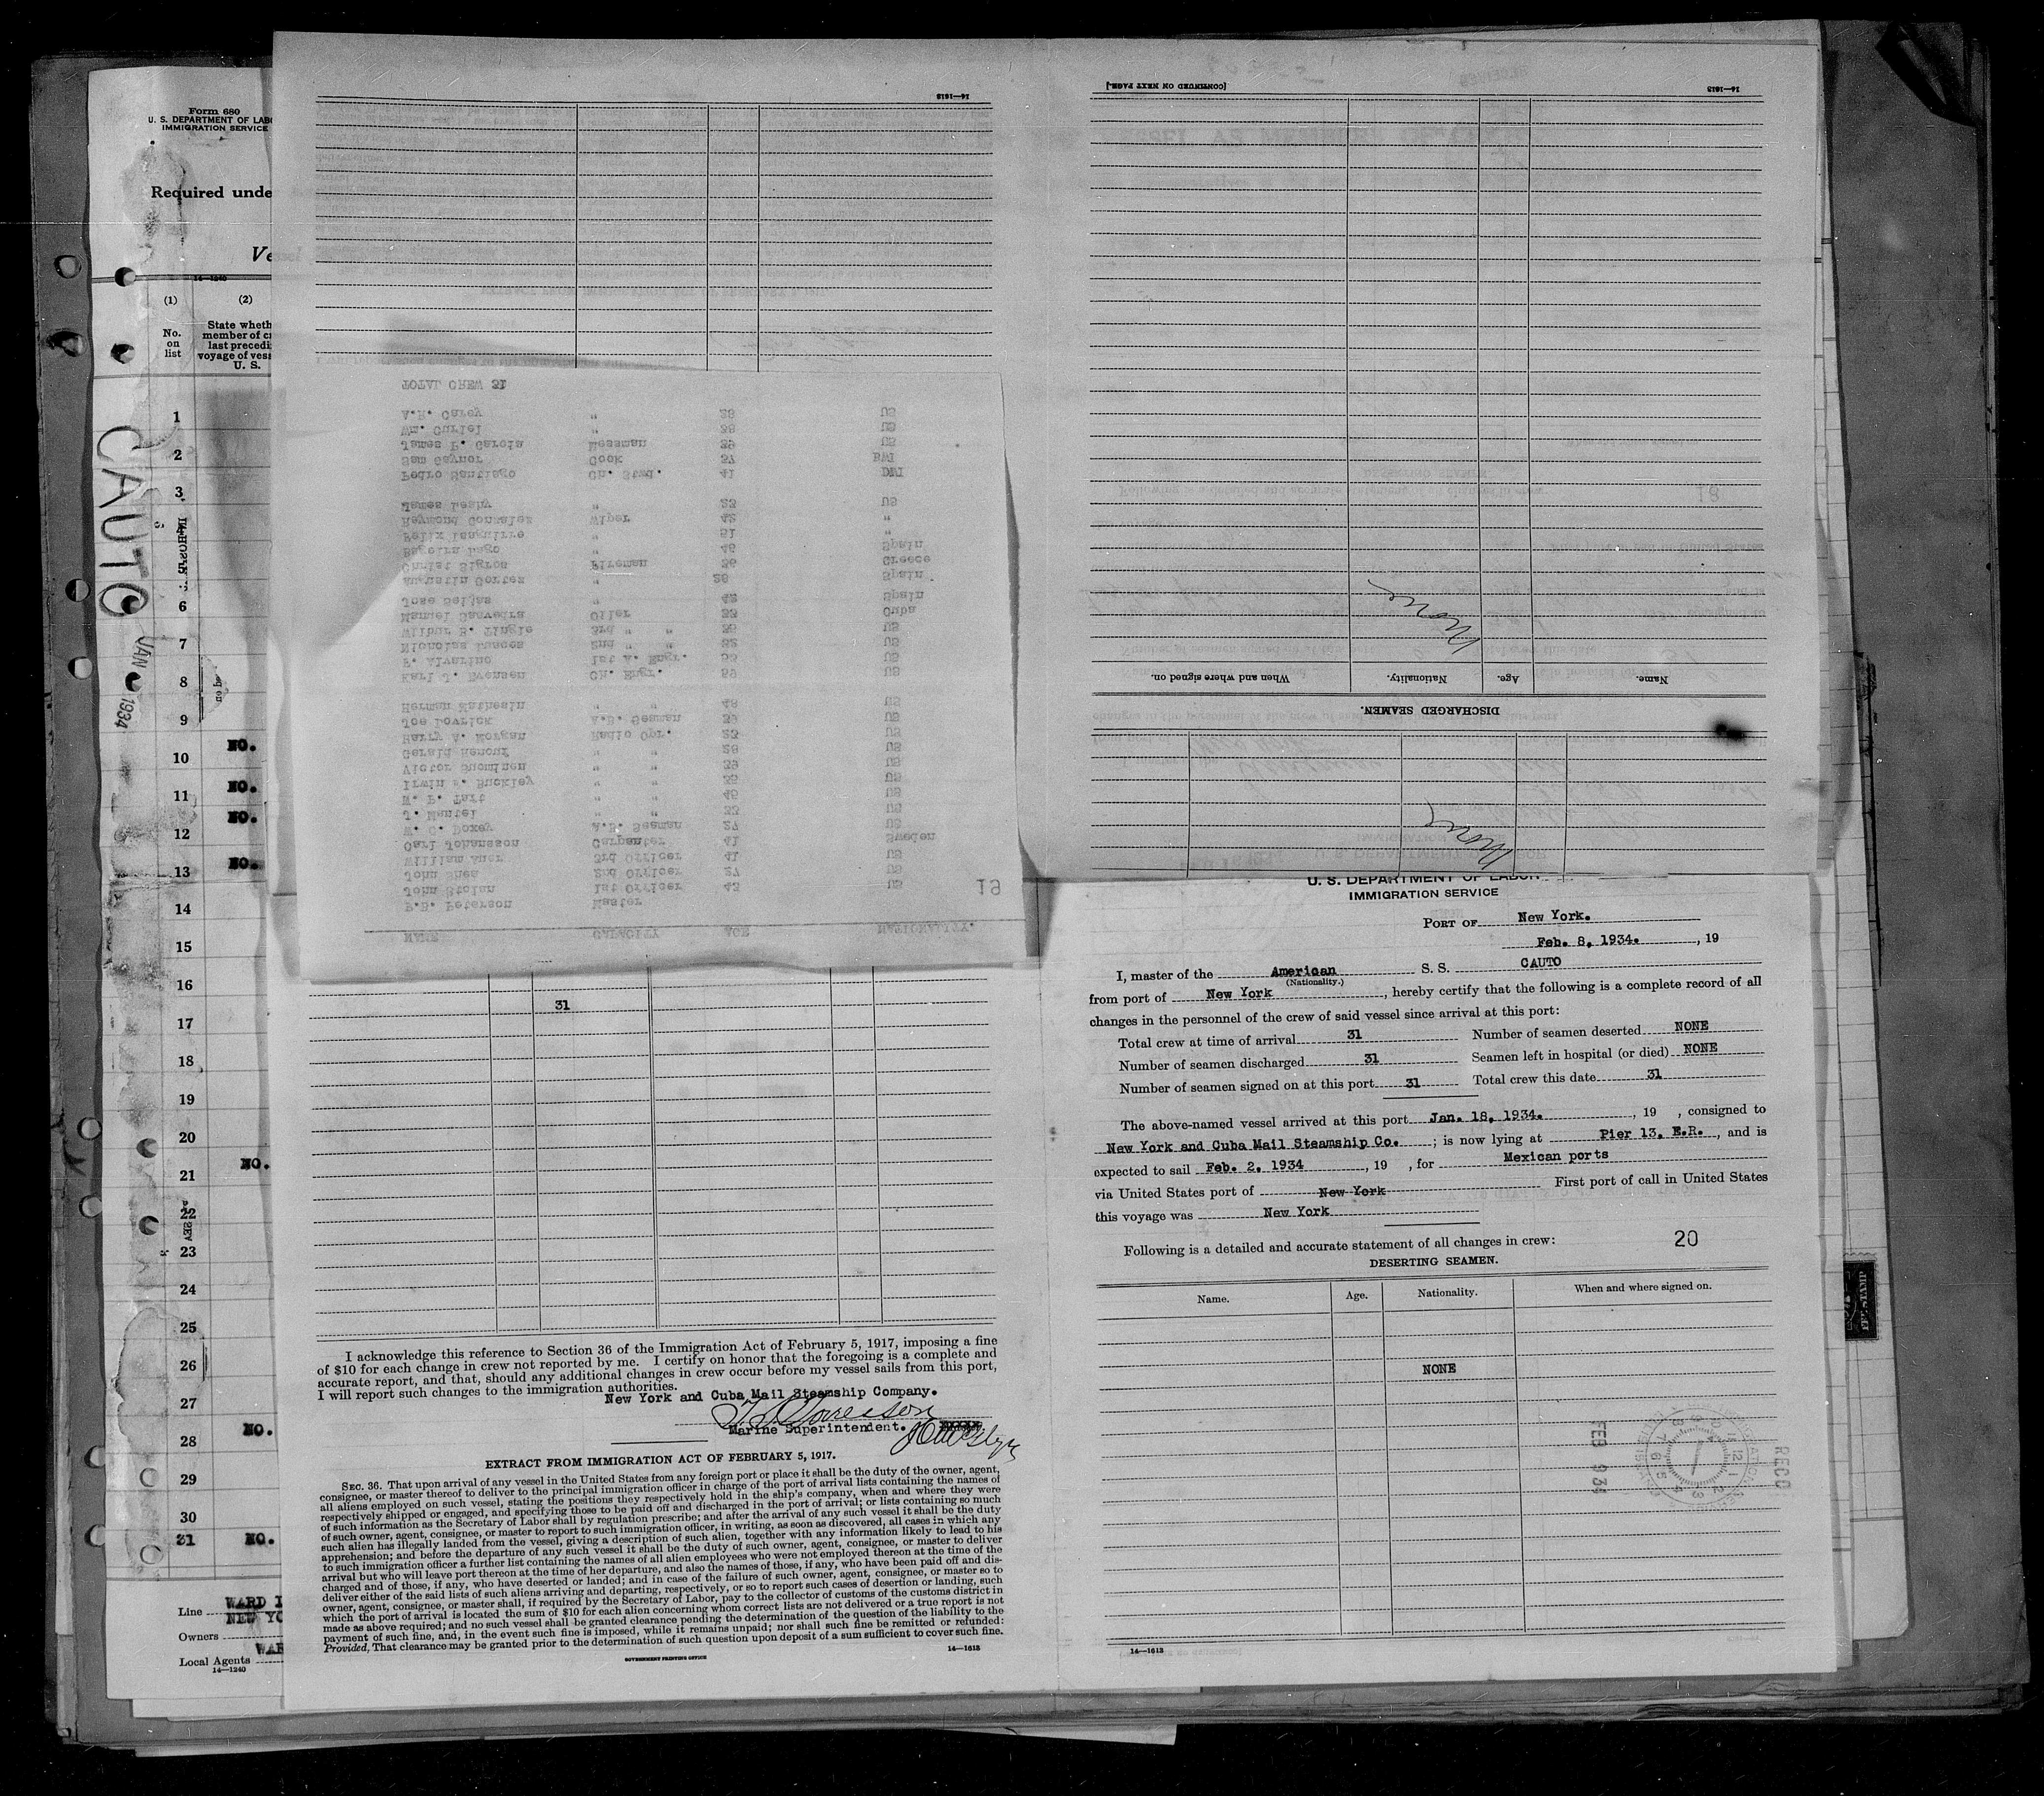 Form 680
U. S. DEPARTMENT OF LABO
IMMIGRATION SERVICE
Required unde
Ve
14—1240
(1)
(2)
No.
on
list
State wheth
member of cr
last precedi
voyage of vess
U. S.
1
2
3
6
7
8
9
10
11
12
13
14
15
16
17
18
19
20
21
22
23
24
25
26
27
28
29
30
31
NO.
NO.
NO.
NO.
NO.
NO.
NO.
CAUTO
JAN
1934
no be
Line
WARD I
NEW YO
Owners
WAR
Local Agents
14—1240
14—1613
NAME CAPACITY AGE NATIONALITY.
P.B. Peterson Master
John Stolan 1st Officer 43 US
John Shea 2nd Officer 27 US
William Auer 3rd Officer 41 US
Carl Johansson Carpenter 41 Sweden
W. C. Doxey A.B. Seaman 27 US
J. Mantel " " 33 US
W. E. Tart " " 46 US
Irwin Buckley " " 35 US
Victor Suominen " " 39 US
Gerald Renouf " " 26 US
Harry A. Morgan Radio Opr. 23 US
Joe Lovrick A.B. Seaman 37 US
Herman Mathesin " " 48 US
Karl J. Evensen Ch. Engr. 59 US
F. Alvarino 1st A. Engr. 55 US
Nicholas Lances 2nd " " 52 US
Wilbur B. Tingle 3rd " " 35 US
Manuel Saaveira Oiler 33 Cuba
Jose Seijas " 42 Spain
Augustin Cortez " 28 Spain
Christ Sigron Fireman 36 Greece
Lago " 46 Spain
Felix Izaguirre " 51 "
Raymond Gonzalez Wiper 42 "
James Leahy " 23 US
Pedro Santiago Ch. Stwd. 41 DWI
Sam Gaynor Cook 37 BWI
James F. Garcia Messman 39 US
Wm. Curiel " 38 US
A.R. Carey " 28 US
TOTAL CREW 31
19
31
I acknowledge this reference to Section 36 of the Immigration Act of February 5, 1917, imposing a fine
of $10 for each change in crew not reported by me. I certify on honor that the foregoing is a complete and
accurate report, and that, should any additional changes in crew occur before my vessel sails from this port,
I will report such changes to the immigration authorities.
New York and Cuba Mail Steamship Company.
Marine Superintendent.
EXTRACT FROM IMMIGRATION ACT OF FEBRUARY 5, 1917.
SEC. 36. That upon arrival of any vessel in the United States from any foreign port or place it shall be the duty of the owner, agent,
consignee, or master thereof to deliver to the principal immigration officer in charge of the port of arrival lists containing the names of
all aliens employed on such vessel, stating the positions they respectively hold in the ship's company, when and where they were
respectively shipped or engaged, and specifying those to be paid off and discharged in the port of arrival; or lists containing so much
of such information as the Secretary of Labor shall by regulation prescribe; and after the arrival of any such vessel it shall be the duty
of such owner, agent, consignee, or master to report to such immigration officer, in writing, as soon as discovered, all cases in which any
such alien has illegally landed from the vessel, giving a description of such alien, together with any information likely to lead to his
apprehension; and before the departure of any such vessel it shall be the duty of such owner, agent, consignee, or master to deliver
to such immigration officer a further list containing the names of all alien employees who were not employed thereon at the time of the
arrival but who will leave port thereon at the time of her departure, and also the names of those, if any, who have been paid off and dis-
charged and of those, if any, who have deserted or landed; and in case of the failure of such owner, agent, consignee, or master so to
deliver either of the said lists of such aliens arriving and departing, respectively, or so to report such cases of desertion or landing, such
owner, agent, consignee, or master shall, if required by the Secretary of Labor, pay to the collector of customs of the customs district in
which the port of arrival is located the sum of $10 for each alien concerning whom correct lists are not delivered or a true report is not
made as above required; and no such vessel shall be granted clearance pending the determination of the question of the liability to the
payment of such fine, and, in the event such fine is imposed, while it remains unpaid; nor shall such fine be remitted or refunded:
Provided, That clearance may be granted prior to the determination of such question upon deposit of a sum sufficient to cover such fine.
14—1613
GOVERNMENT PRINTING OFFICE
None
DISCHARGED SEAMEN.
Name. Age. Nationality. When and where signed on.
None
[CONTINUED ON NEXT PAGE.]
14—1613
18
U. S. DEPARTMENT OF LABOR
IMMIGRATION SERVICE
PORT OF New York.
Feb. 8, 1934. , 19
I, master of the American S. S. CAUTO
(Nationality.)
from port of New York , hereby certify that the following is a complete record of all
changes in the personnel of the crew of said vessel since arrival at this port:
Total crew at time of arrival 31 Number of seamen deserted NONE
Number of seamen discharged 31 Seamen left in hospital (or died) NONE
Number of seamen signed on at this port 31 Total crew this date 31
The above-named vessel arrived at this port Jan. 18, 1934. , 19 , consigned to
New York and Cuba Mail Steamship Co. ; is now lying at Pier 13, E.R. , and is
expected to sail Feb. 2, 1934 , 19 , for Mexican ports
via United States port of New York First port of call in United States
this voyage was New York
Following is a detailed and accurate statement of all changes in crew: 20
DESERTING SEAMEN.
Name. Age. Nationality. When and where signed on.
NONE
FEB 9 34
RECD
14—1613